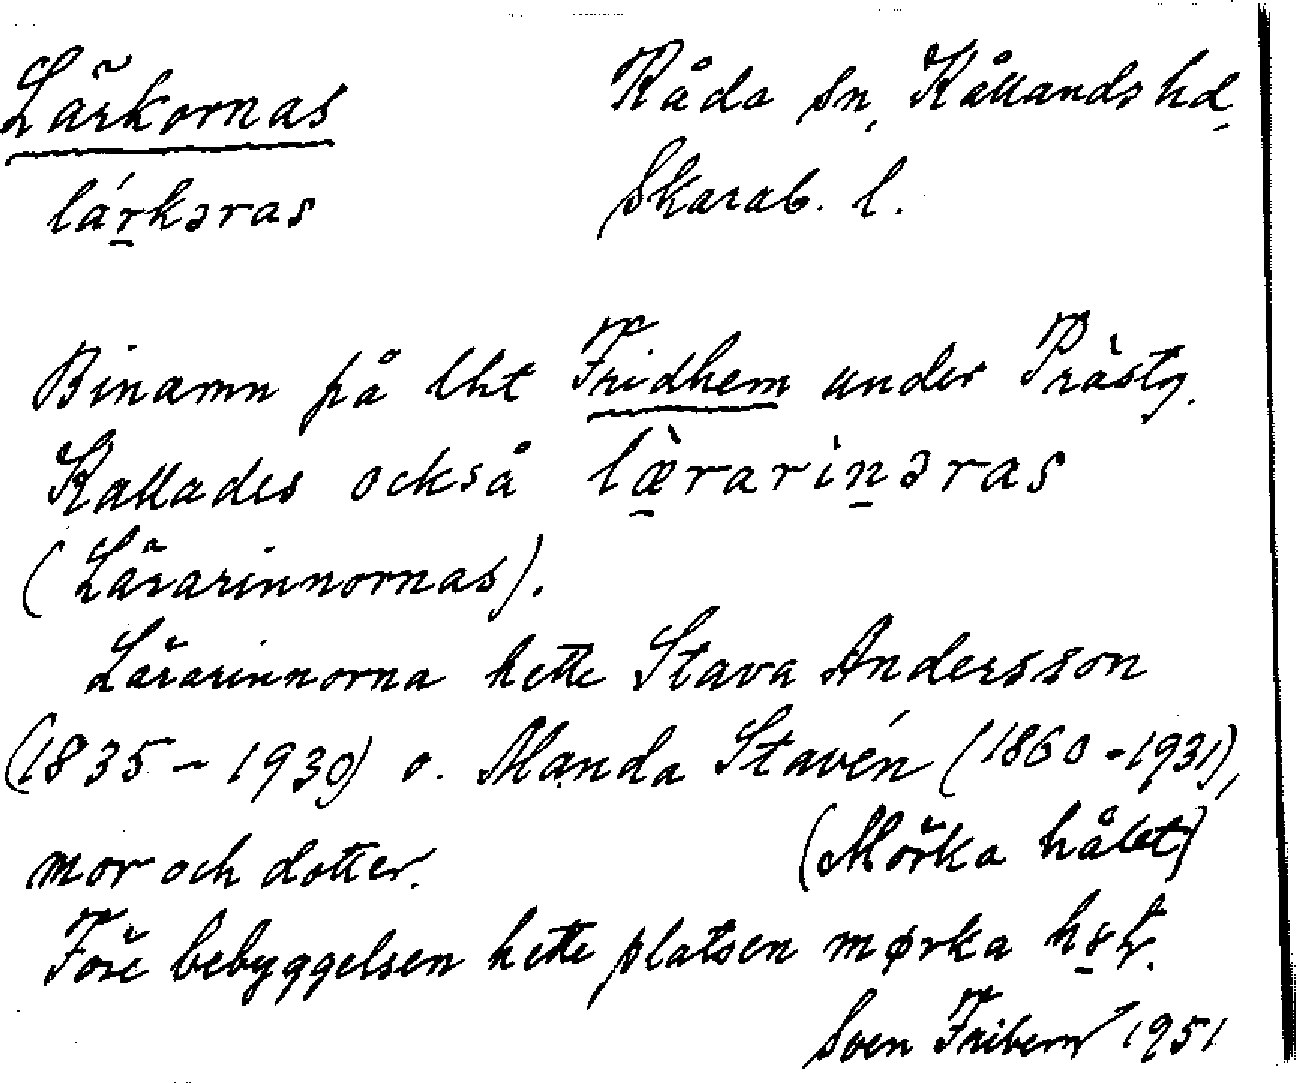 Lärkornas
Råda sn, Kållands hd
lá̱rkəras
Skarab. l.
Binamn på lht Fridhem under Prästg.
Kallades också læ̀rarìṉəras
(Lärarinnornas).
Lärarinnorna hette Stava Andersson
(1835-1930) o. Manda Stavén (1860-1931),
mor och dotter. (Mörka hålet)
Före bebyggelsen hette platsen mørka
Sven Friberg 1951